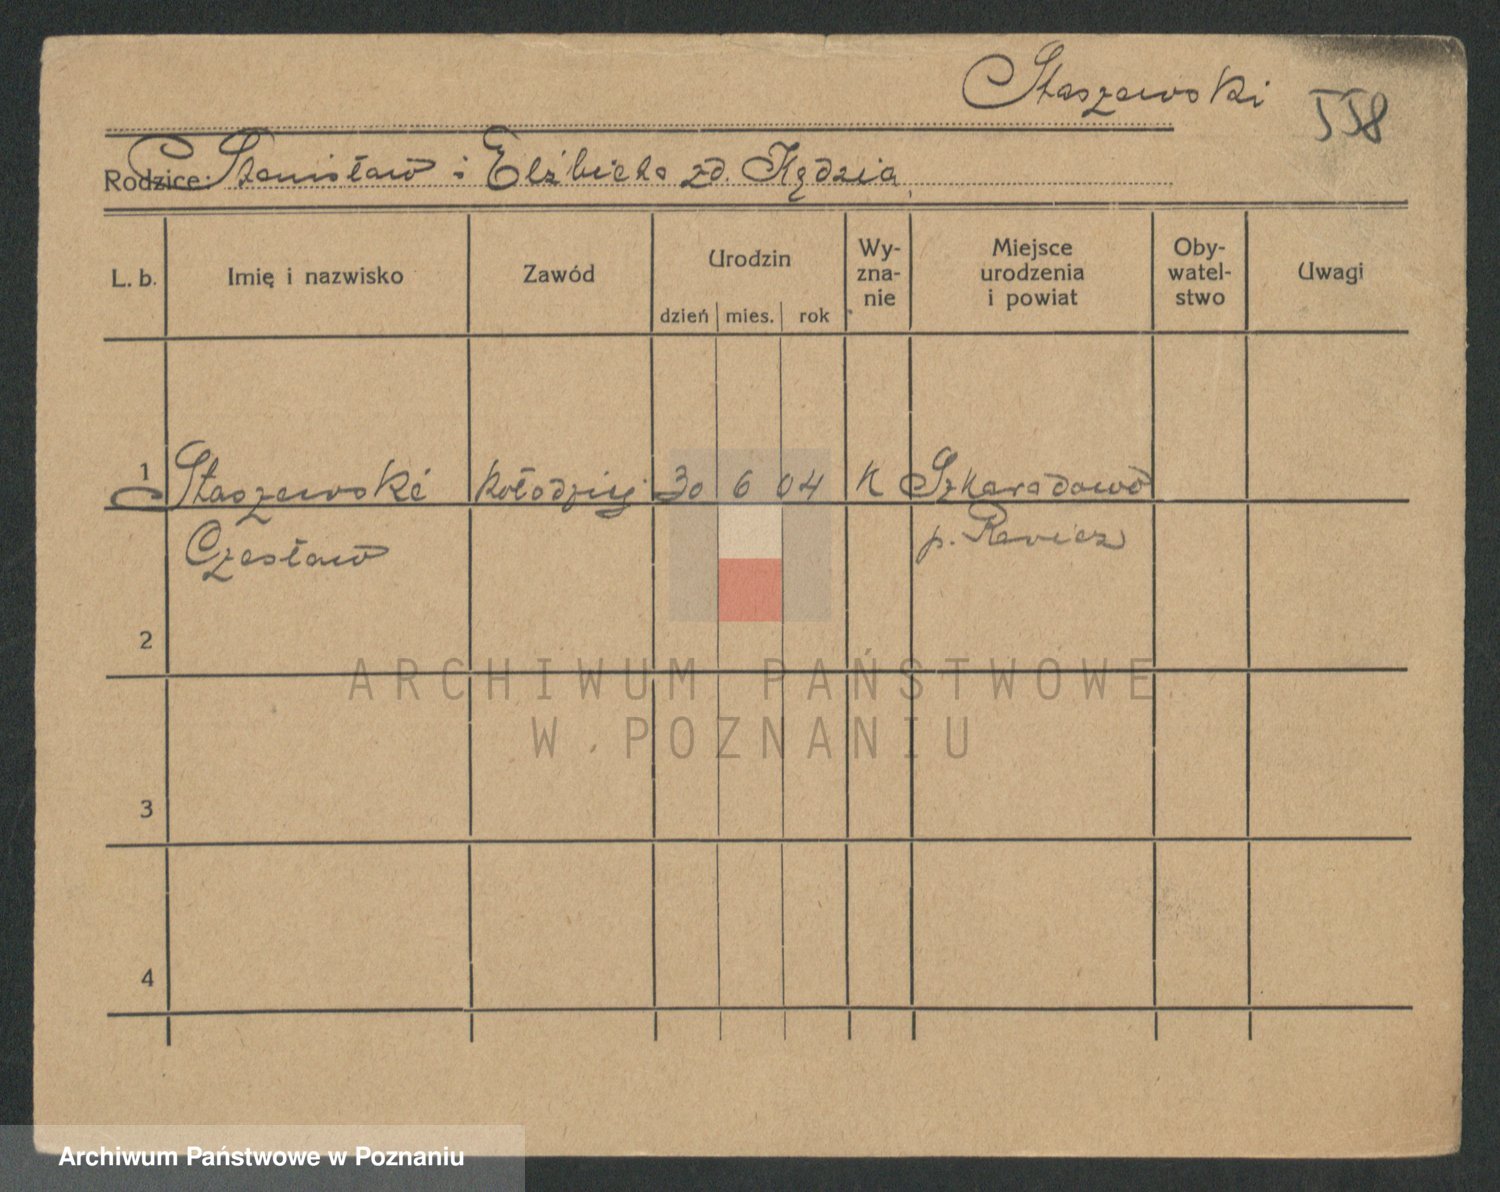 Staszewski
558
Rodzice: Stanisław i Elżbieta zd. Kędzia
L. b. Imię i nazwisko Zawód Urodzin dzień mies. rok Wy-zna-nie Miejsce urodzenia i powiat Oby-watel-stwo Uwagi
1 Staszewski kołodziej 30 6 04 K Szkaradowo
Czesław p. Rawicz
2
ARCHIWUM PAŃSTWOWE
W POZNANIU
3
4
Archiwum Państwowe w Poznaniu